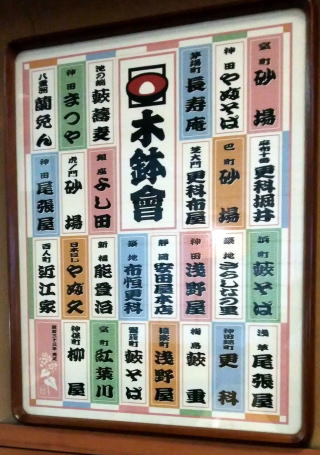 木鉢會
室町 砂場
神田 やぶそば
茅場町 長寿庵
池の端 藪蕎麦
神田 まつや
八重洲 蘭免ん
麻布十番 更科堀井
巴町 砂場
芝大門 更科布屋
銀座 よし田
虎ノ門 砂場
神田 尾張屋
浜町 藪そば
築地 さらしなの里
神田 浅野屋
静岡 安田屋本店
築地 布恒更科
新橋 能登治
日本ばし やぶ久
百人町 近江家
浅草 尾張屋
神田錦町 更科
梅島 藪重
猿楽町 浅野屋
藪そば
室町 紅葉川
神保町 柳屋